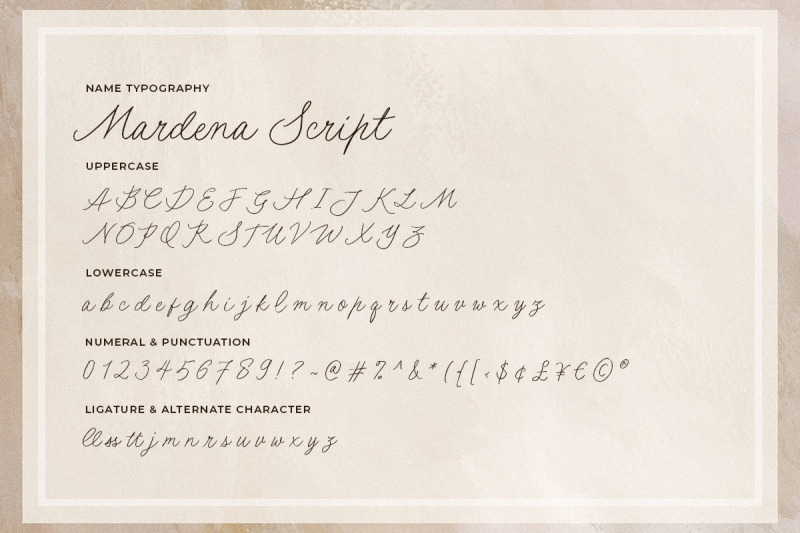 NAME TYPOGRAPHY
Mardena Script
UPPERCASE
A B C D E F G H I J K L M
N O P Q R S T U V W X Y Z
LOWERCASE
a b c d e f g h i j k l m n o p q r s t u v w x y z
NUMERAL & PUNCTUATION
0 1 2 3 4 5 6 7 8 9 ! ? ~ @ # % ^ & * ( { [ ‹ $ ¢ £ ¥ € © ®
LIGATURE & ALTERNATE CHARACTER
ll ss tt j m n r s u v w x y z